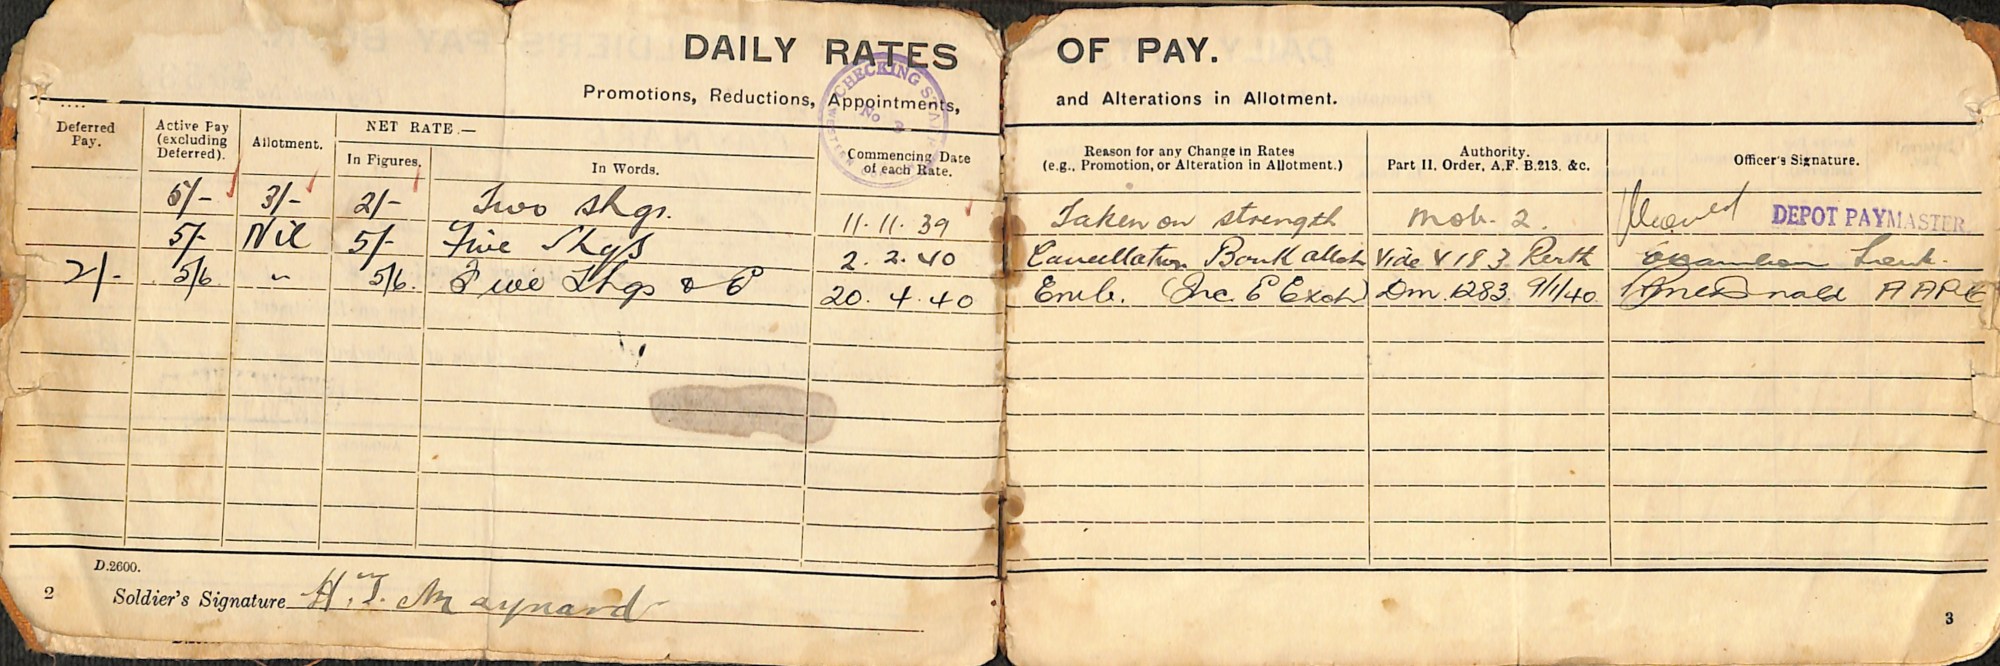 DAILY RATES OF PAY.
Promotions, Reductions, Appointments, and Alterations in Allotment.
CHECKING
No 3
Deferred Pay.
Active Pay (excluding Deferred).
Allotment.
NET RATE.—
In Figures.
In Words.
Commencing Date of each Rate.
Reason for any Change in Rates (e.g., Promotion, or Alteration in Allotment.)
Authority. Part II. Order, A.F. B.213. &c.
Officer's Signature.
5/- 3/- 2/- Two shgs. 11.11.39 Taken on strength Mob. 2. DEPOT PAYMASTER
5/- Nil 5/- Five Shgs 2.2.40 Cancellation Bank allot Vide V183 Perth Lieut.
2/- 5/6 " 5/6. Five Shgs & 6 20.4.40 Emb. (Inc. 6 Exch) Dm. 1283. 9/1/40
D.2600.
2 Soldier's Signature H.T. Maynard
3